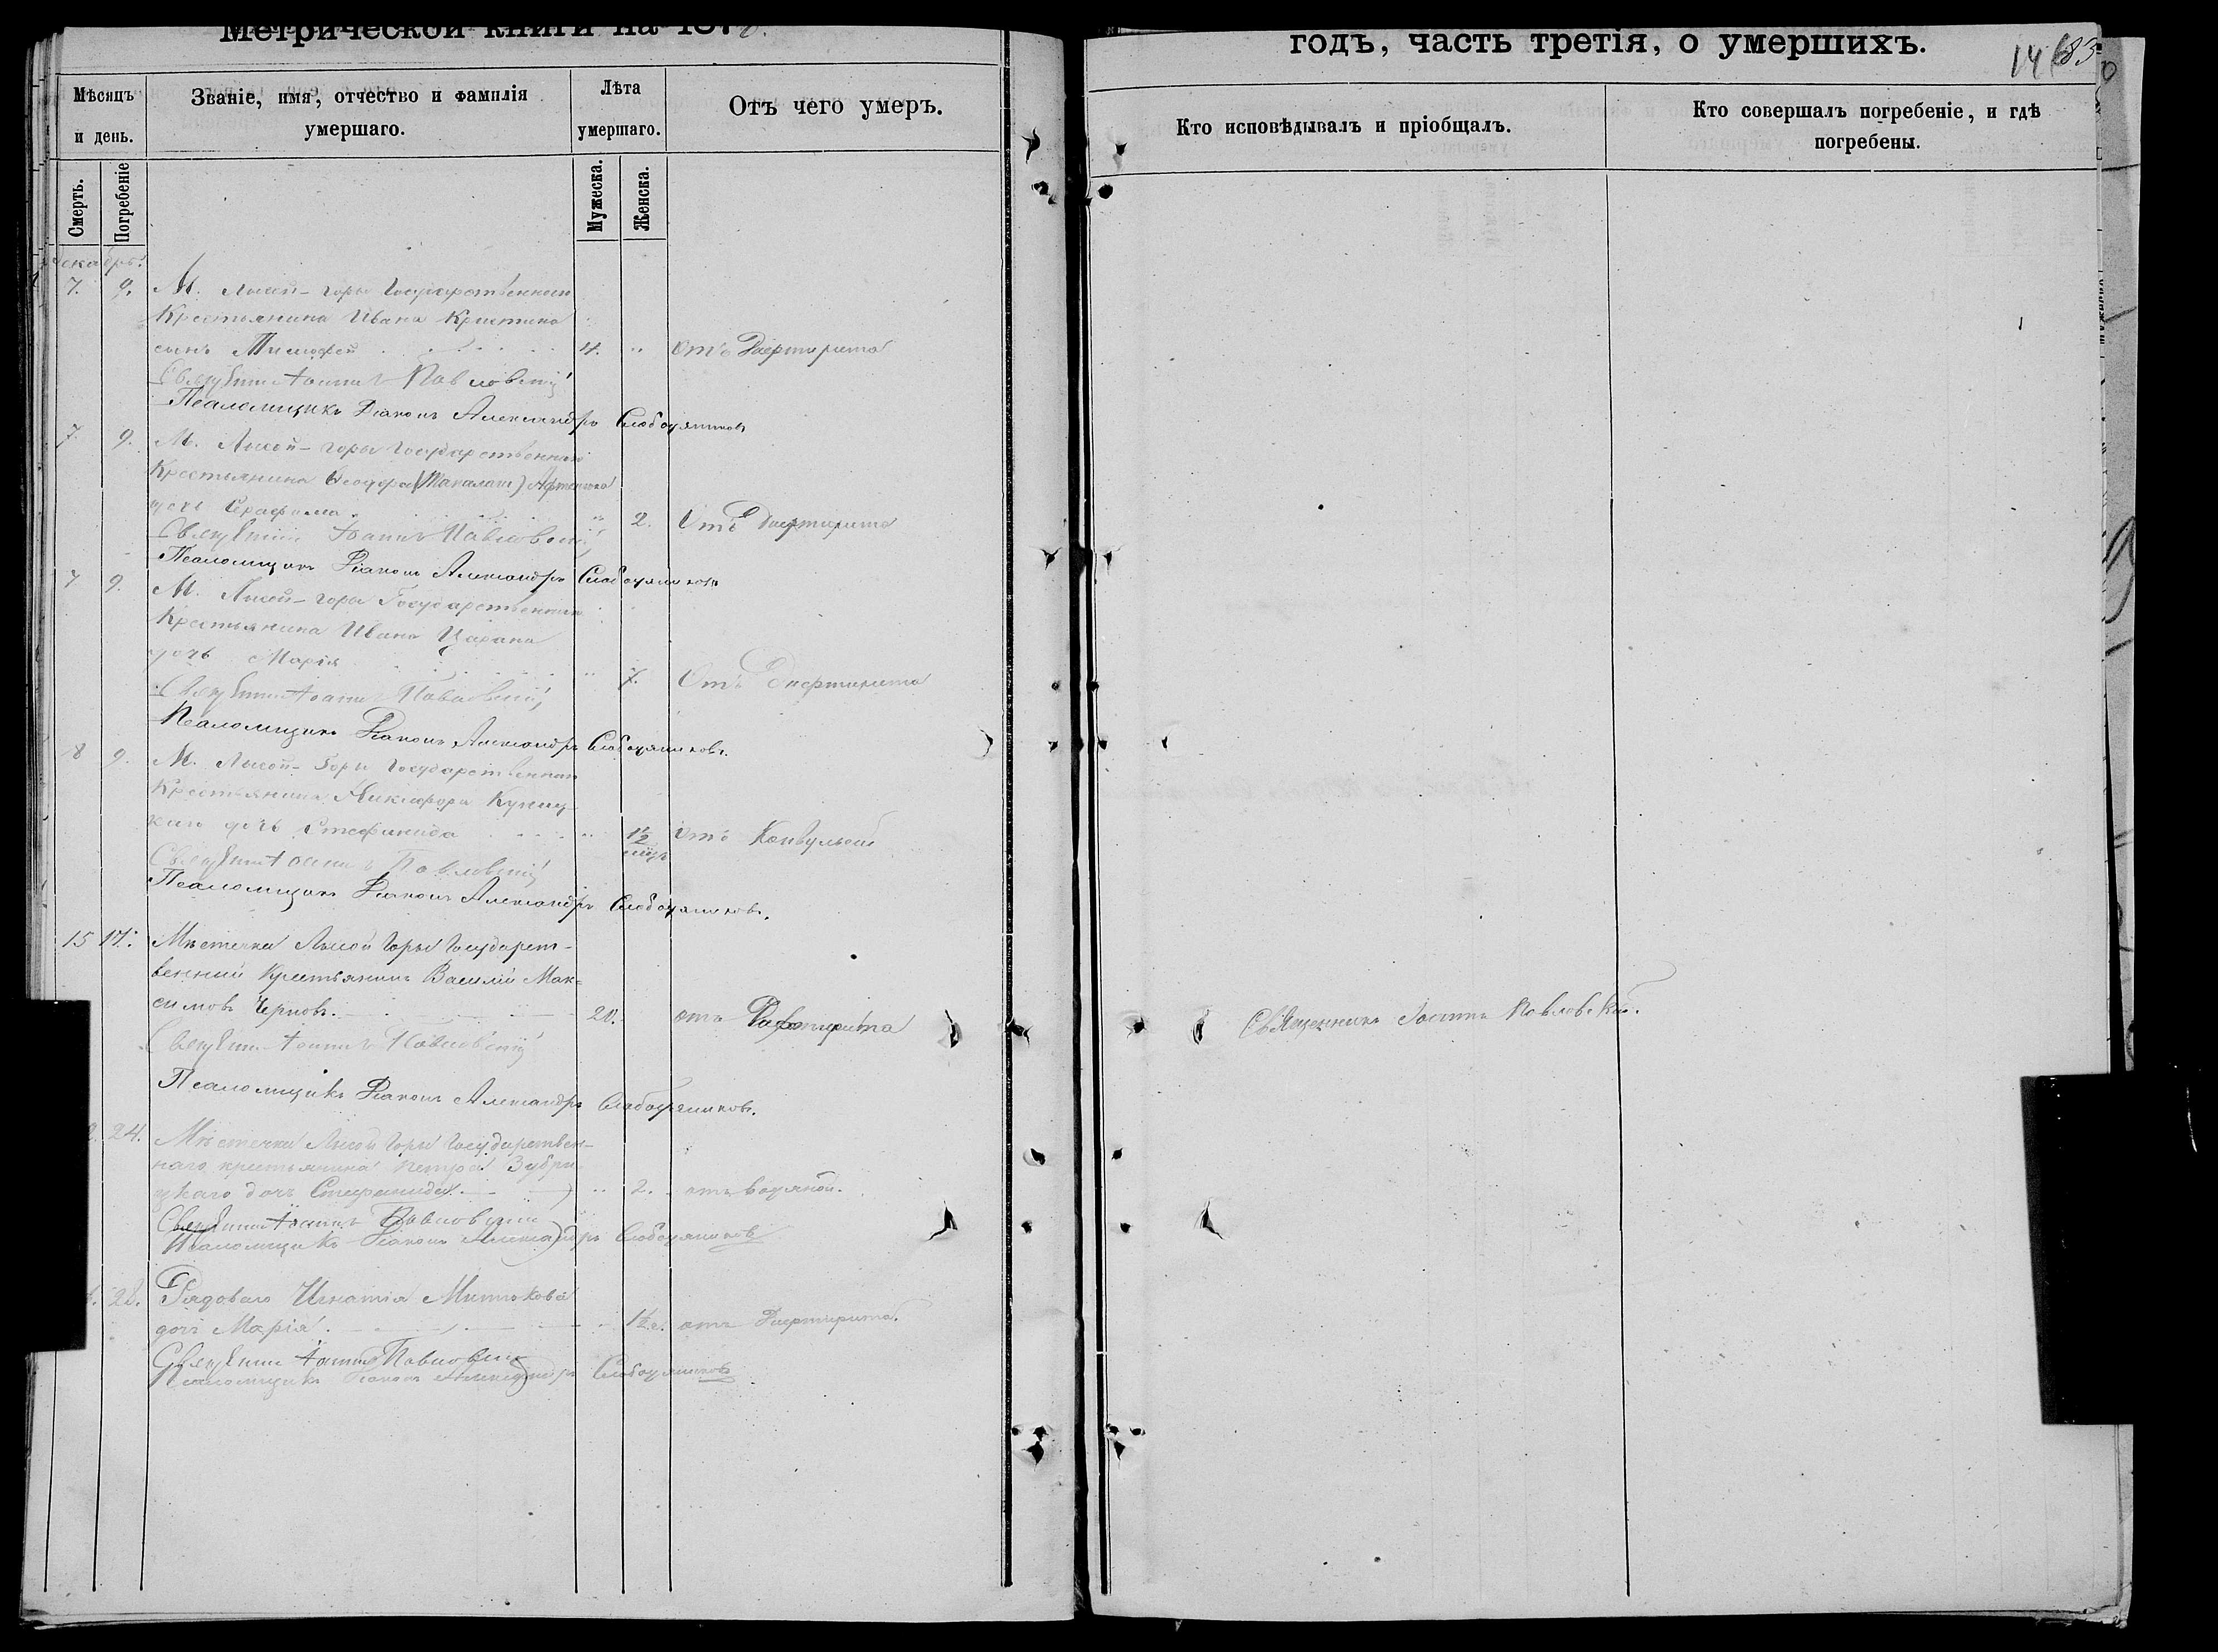 Метрической книги на 187
годъ, часть третія, о умершихъ.
14 683
Мѣсяцъ и день.
Званіе, имя, отчество и фамилія умершаго.
Лѣта умершаго.
Отъ чего умеръ.
Кто исповѣдывалъ и пріобщалъ.
Кто совершалъ погребеніе, и гдѣ погребены.
Смерть.
Погребеніе
Мужеска.
Женска.
7. 9. М. Лысой-горы Государственнаго
Крестьянина Ивана
сынъ Тимофей 4. " Отъ Дифтерита
Священникъ Іоаннъ Павловскій
Псаломщикъ Діаконъ Александръ Слободяниковъ
7. 9. М. Лысой-горы Государственнаго
Крестьянина Ѳеодора
дочь Серафима " 2. Отъ Дифтерита
Священникъ Іоаннъ Павловскій
Псаломщикъ Діаконъ Александръ Слободяниковъ
7 9. М. Лысой-горы Государственнаго
Крестьянина Ивана Царана
дочь Марія " 7. Отъ Дифтерита
Священникъ Іоаннъ Павловскій
Псаломщикъ Діаконъ Александръ Слободяниковъ.
8 9. М. Лысой-Горы Государственнаго
Крестьянина Никифора
дочь Стефанида " 1½ Отъ Конвульсій
Священникъ Іоаннъ Павловскій
Псаломщикъ Діаконъ Александръ Слободяниковъ.
15 17. Мѣстечка Лысой Горы Государст-
венный Крестьянинъ Василій Мак-
симовъ Черновъ. 20. отъ Дифтерита Священникъ Іоаннъ Павловскій.
Священникъ Іоаннъ Павловскій
Псаломщикъ Діаконъ Александръ Слободяниковъ.
24. Мѣстечка Лысой Горы Государствен-
наго крестьянина Петра Зубри
цкаго дочь Стефанида. " 2. отъ водяной.
Священникъ Іоаннъ Павловскій
Псаломщикъ Діаконъ Александръ Слободяниковъ
28. Рядоваго Игнатія Митькова
дочь Марія. 1½ отъ Дифтерита.
Священникъ Іоаннъ Павловскій
Псаломщикъ Діаконъ Александръ Слободяниковъ